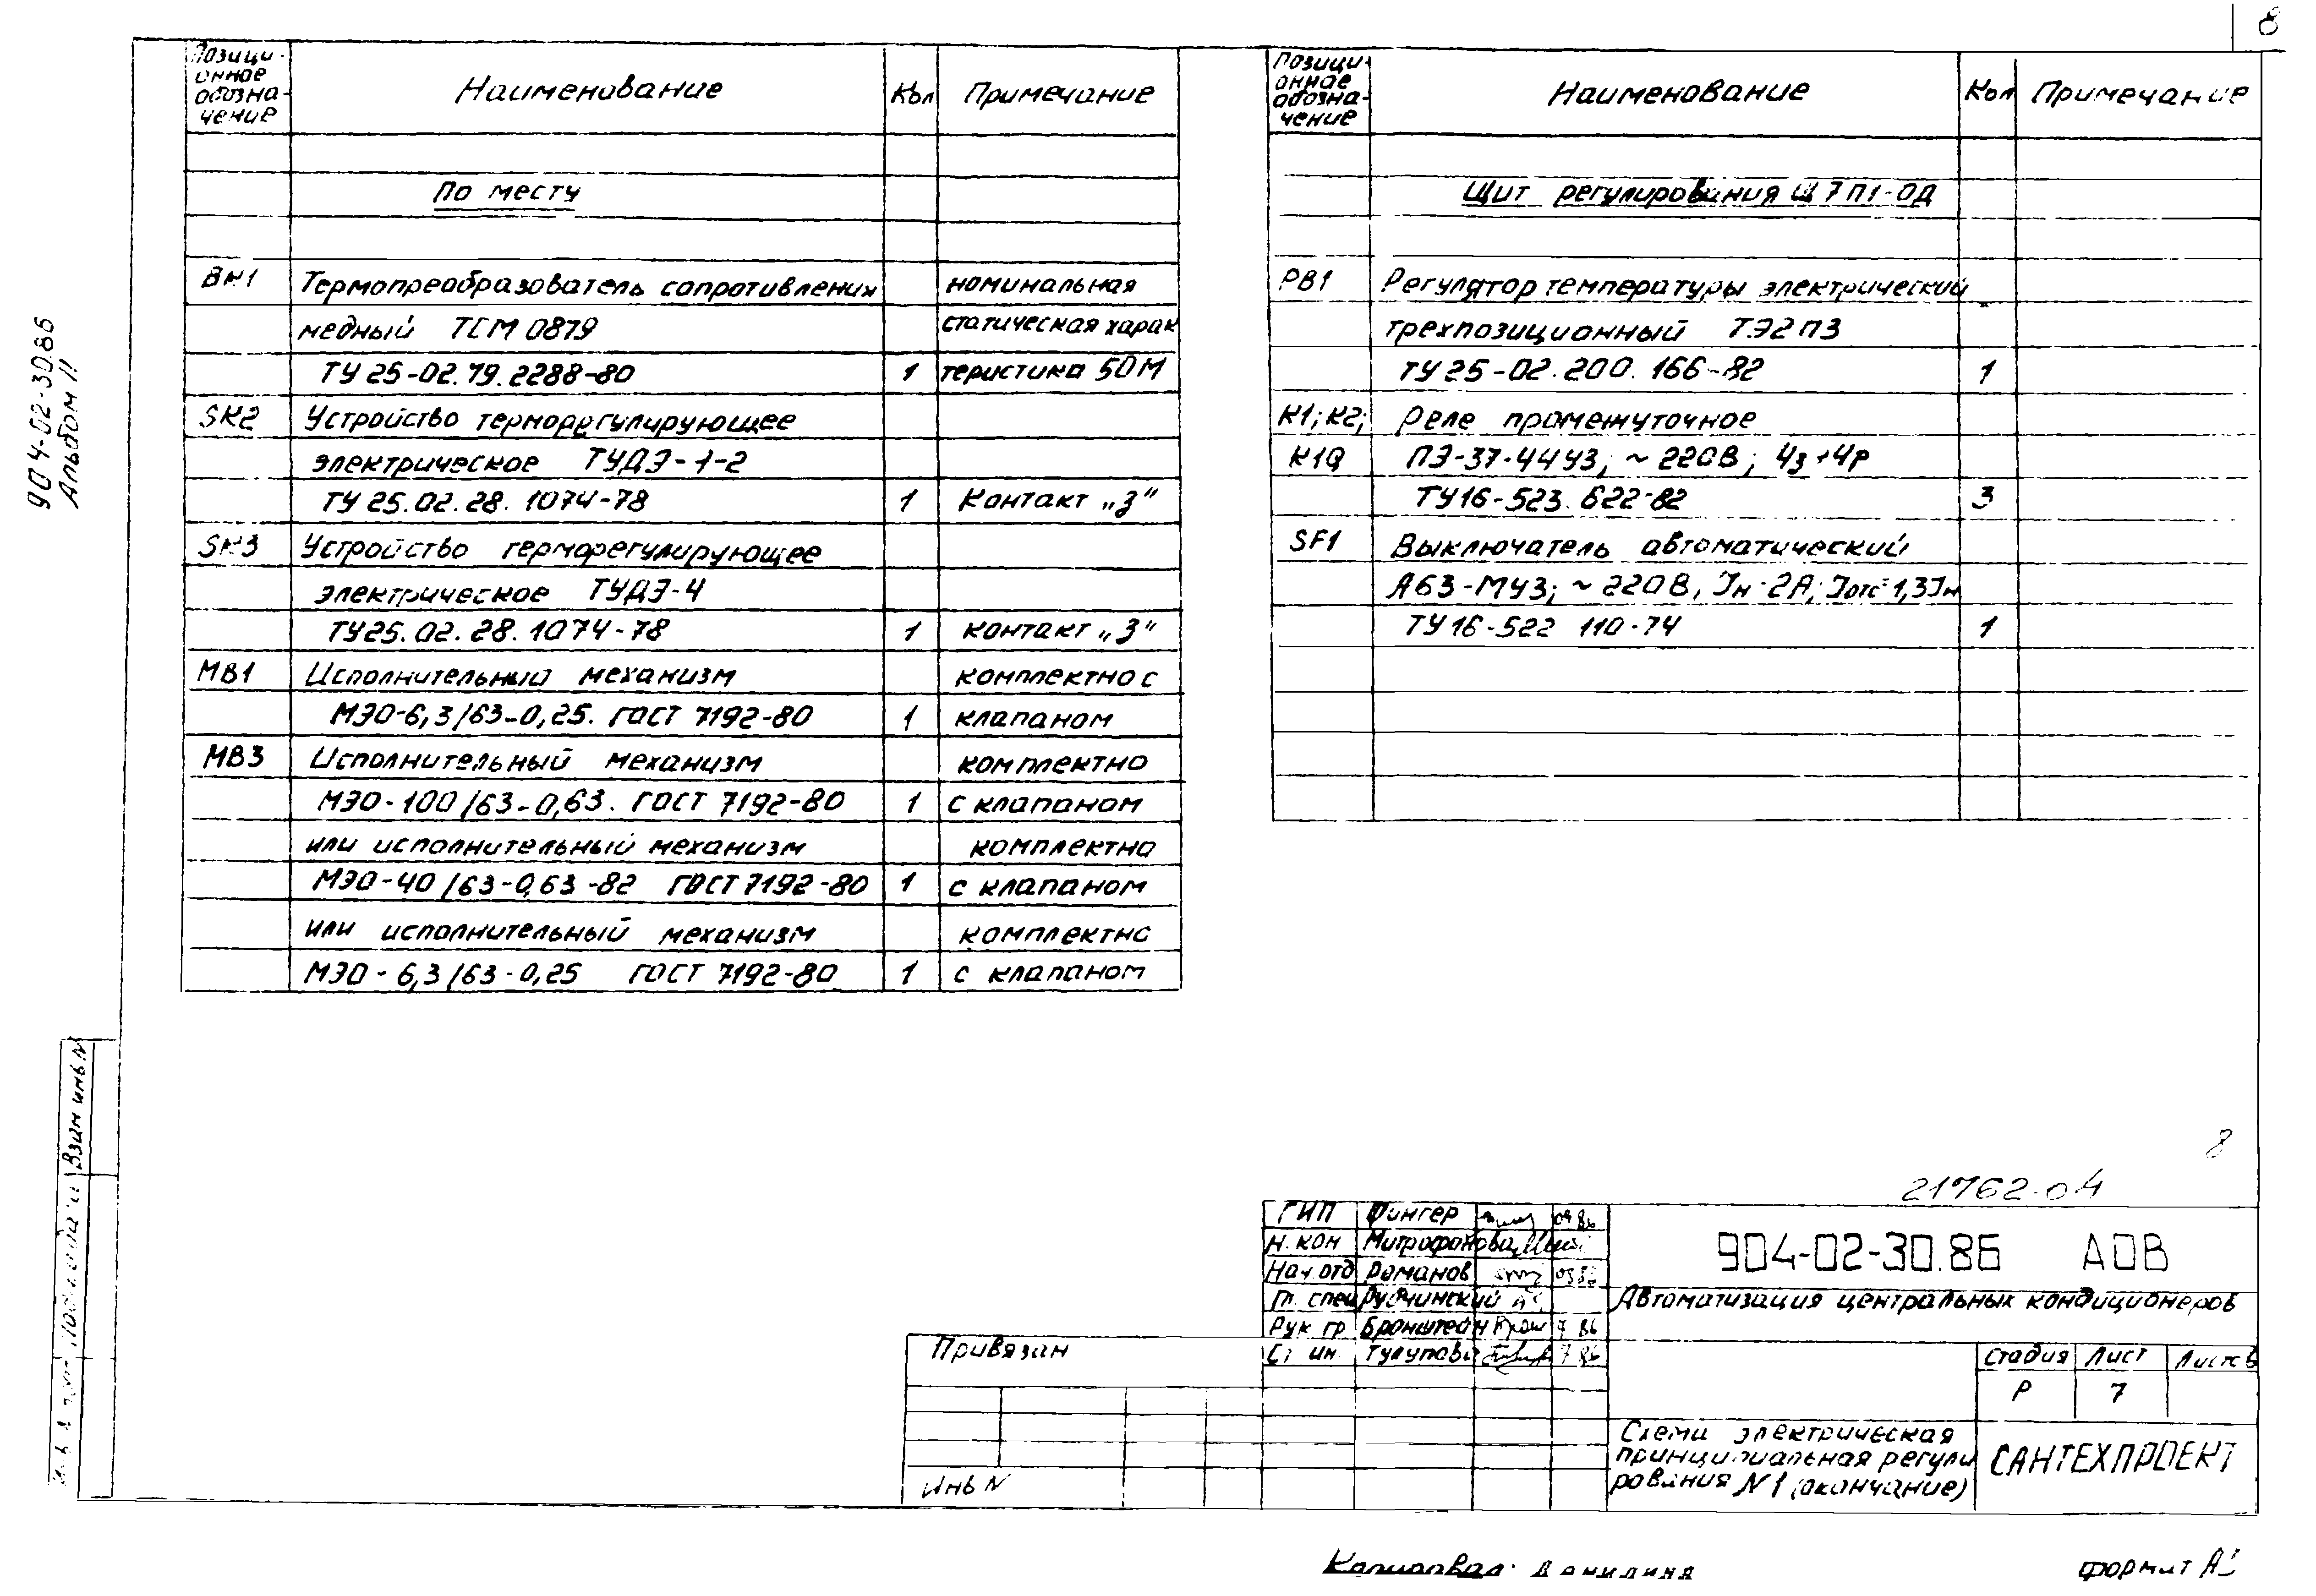 8
904-02-30.86
Альбом II
Позици-
онное
обозна-
чение
Наименование
Кол
Примечание
По месту
ВК1 Термопреобразователь сопротивления номинальная
медный ТСМ 0879 статическая харак
ТУ 25-02.79.2288-80 1 теристика 50М
SК2 Устройство терморегулирующее
электрическое ТУДЭ-1-2
ТУ 25.02.28.1074-78 1 Контакт „З"
SК3 Устройство терморегулирующее
электрическое ТУДЭ-4
ТУ25.02.28.1074-78 1 контакт „З"
МВ1 Исполнительный механизм комплектно с
МЭО-6,3/63-0,25. ГОСТ 7192-80 1 клапаном
МВ3 Исполнительный механизм комплектно
МЭО-100/63-0,63. ГОСТ 7192-80 1 с клапаном
или исполнительный механизм комплектно
МЭО-40/63-0,63-82 ГОСТ 7192-80 1 с клапаном
или исполнительный механизм комплектно
МЭО-6,3/63-0,25 ГОСТ 7192-80 1 с клапаном
Позици-
онное
обозна-
чение
Наименование
Кол
Примечание
Щит регулирования Щ7П1-ОД
РВ1 Регулятор температуры электрический
трехпозиционный ТЭ2П3
ТУ 25-02.200.166-82 1
К1; К2; Реле промежуточное
К1Q ПЭ-37-44У3; ~ 220В; 4з+4р
ТУ16-523.622-82 3
SF1 Выключатель автоматический
А63-МУ3; ~ 220В, Iн-2А; Iотс=1,3Iн
ТУ16-522 110-74 1
8
21762-04
ГИП Фингер 09 86
Н. кон Митрофанова
Нач. отд Романов 09 86
Гл. спец Рубчинский
Рук гр Бронштейн 7 86
Ст. ин. Тулупова 7 86
904-02-30.86 АОВ
Автоматизация центральных кондиционеров
Стадия Лист Листов
Р 7
Схема электрическая
принципиальная регули
рования N1 (окончание)
САНТЕХПРОЕКТ
Привязан
Инв N
Взам инв N
Копировал: Данилина
формат А3